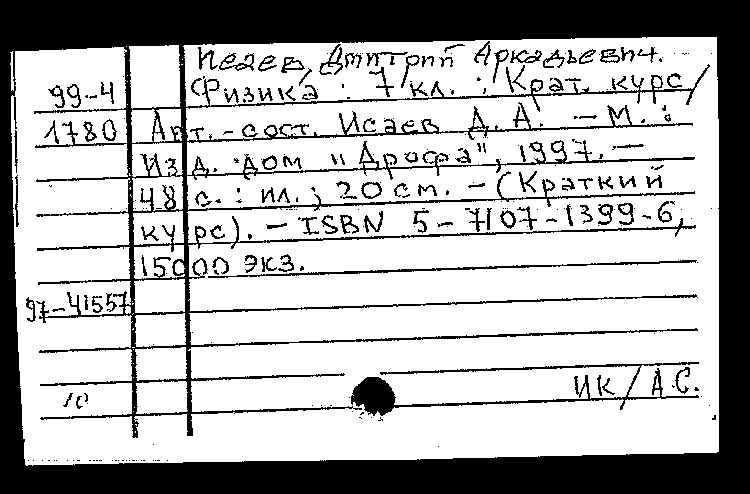 Исаев, Дмитрий Аркадьевич.
99-4 Физика : 7 кл. : Крат. курс /
1780 Авт.-сост. Исаев Д. А. - М. :
Изд. дом "Дрофа", 1997. -
48 с. : ил. ; 20 см. - (Краткий
курс). - ISBN 5-7107-1399-6,
15000 экз.
97-41557
ИК/А.С.
10